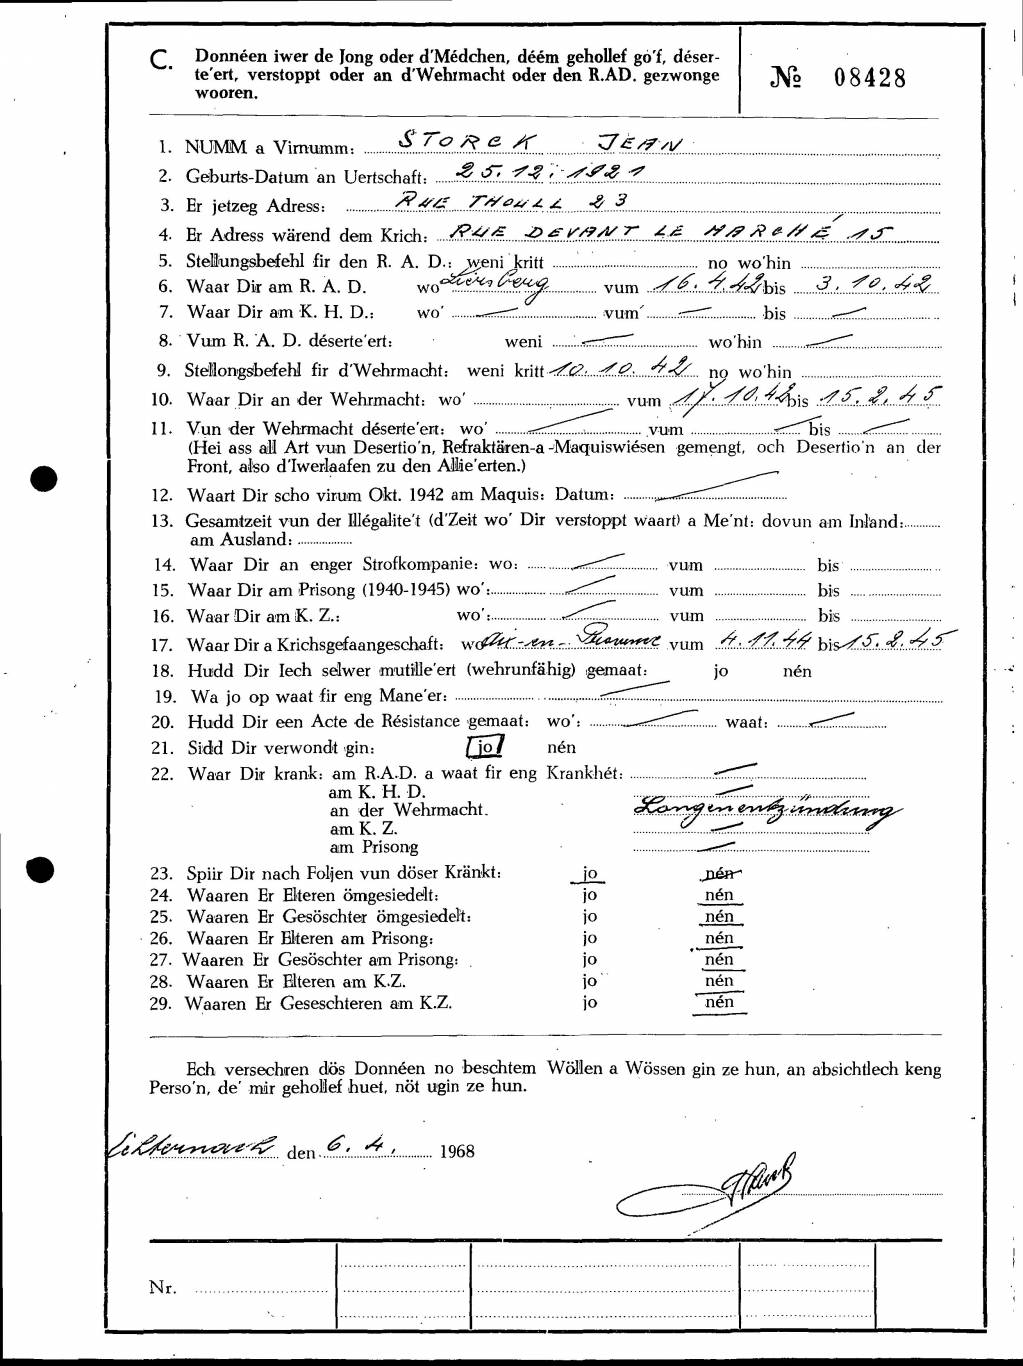 C. Donnéen iwer de Jong oder d'Médchen, déém gehollef gö'f, déser-
te'ert, verstoppt oder an d'Wehrmacht oder den R.AD. gezwonge
wooren.
№ 08428
1. NUMM a Virnumm: STORCK JEAN
2. Geburts-Datum an Uertschaft: 25.12.1921
3. Er jetzeg Adress: RUE THOULL 23
4. Er Adress wärend dem Krich: RUE DEVANT LE MARCHÉ 15
5. Stellungsbefehl fir den R. A. D.: weni kritt no wo'hin
6. Waar Dir am R. A. D. wo vum 16.4.42 bis 3.10.42
7. Waar Dir am K. H. D.: wo' — vum — bis —
8. Vum R. A. D. déserte'ert: weni — wo'hin —
9. Stellongsbefehl fir d'Wehrmacht: weni kritt 10.10.42 no wo'hin
10. Waar Dir an der Wehrmacht: wo' vum 17.10.42 bis 15.2.45
11. Vun der Wehrmacht déserte'ert: wo' — vum — bis —
(Hei ass all Art vun Desertio'n, Refraktären-a-Maquiswiésen gemengt, och Desertio'n an der
Front, also d'Iwerlaafen zu den Allie'erten.)
12. Waart Dir scho virum Okt. 1942 am Maquis: Datum: —
13. Gesamtzeit vun der Illégalite't (d'Zeit wo' Dir verstoppt waart) a Me'nt: dovun am Inland:
am Ausland:
14. Waar Dir an enger Strofkompanie: wo: — vum bis
15. Waar Dir am Prisong (1940-1945) wo': — vum bis
16. Waar Dir am K. Z.: wo': — vum bis
17. Waar Dir a Krichsgefaangeschaft: wo Aix-en-Provence vum 4.11.44 bis 15.2.45
18. Hudd Dir Iech selwer mutille'ert (wehrunfähig) gemaat: jo nén
19. Wa jo op waat fir eng Mane'er: —
20. Hudd Dir een Acte de Résistance gemaat: wo': — waat: —
21. Sidd Dir verwondt gin: jo nén
22. Waar Dir krank: am R.A.D. a waat fir eng Krankhét: —
am K. H. D. —
an der Wehrmacht. Longenentzündung
am K. Z. —
am Prisong —
23. Spiir Dir nach Foljen vun döser Kränkt: jo nén
24. Waaren Er Elteren ömgesiedelt: jo nén
25. Waaren Er Gesöschter ömgesiedelt: jo nén
26. Waaren Er Elteren am Prisong: jo nén
27. Waaren Er Gesöschter am Prisong: jo nén
28. Waaren Er Elteren am K.Z. jo nén
29. Waaren Er Geseschteren am K.Z. jo nén
Ech versechren dös Donnéen no beschtem Wöllen a Wössen gin ze hun, an absichtlech keng
Perso'n, de' mir gehollef huet, nöt ugin ze hun.
Echternach den 6.4. 1968
Nr.